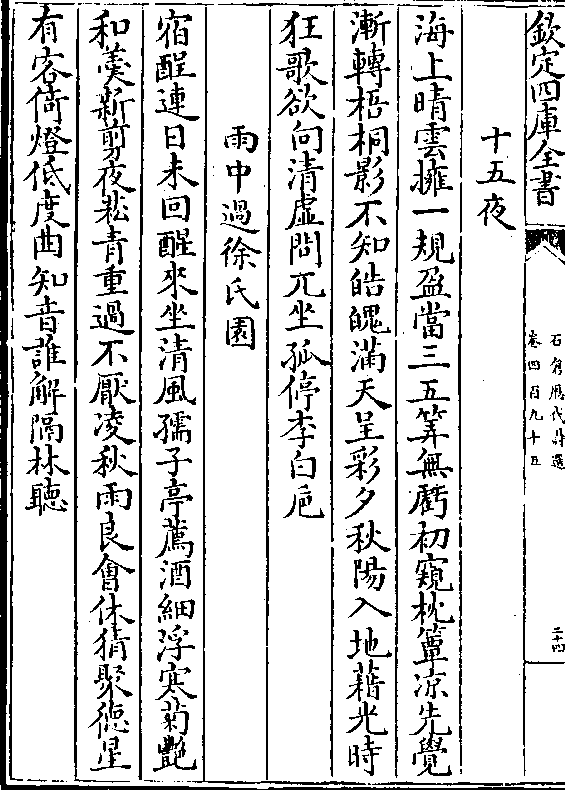 欽定四庫全書
石倉歷代詩選
卷四百九十五
二十四
十五夜
海上晴雲擁一規盈當三五筭無虧初窺枕簟凉先覺
漸轉梧桐影不知皓魄滿天呈彩夕秋陽入地藉光時
狂歌欲向清虚問兀坐孤停李白巵
雨中過徐氏園
宿酲連日未回醒來坐清風孺子亭薦酒細浮寒菊艷
和羮新剪夜菘青重過不厭凌秋雨良會休猜聚德星
有客倚燈低度曲知音誰解隔林聽